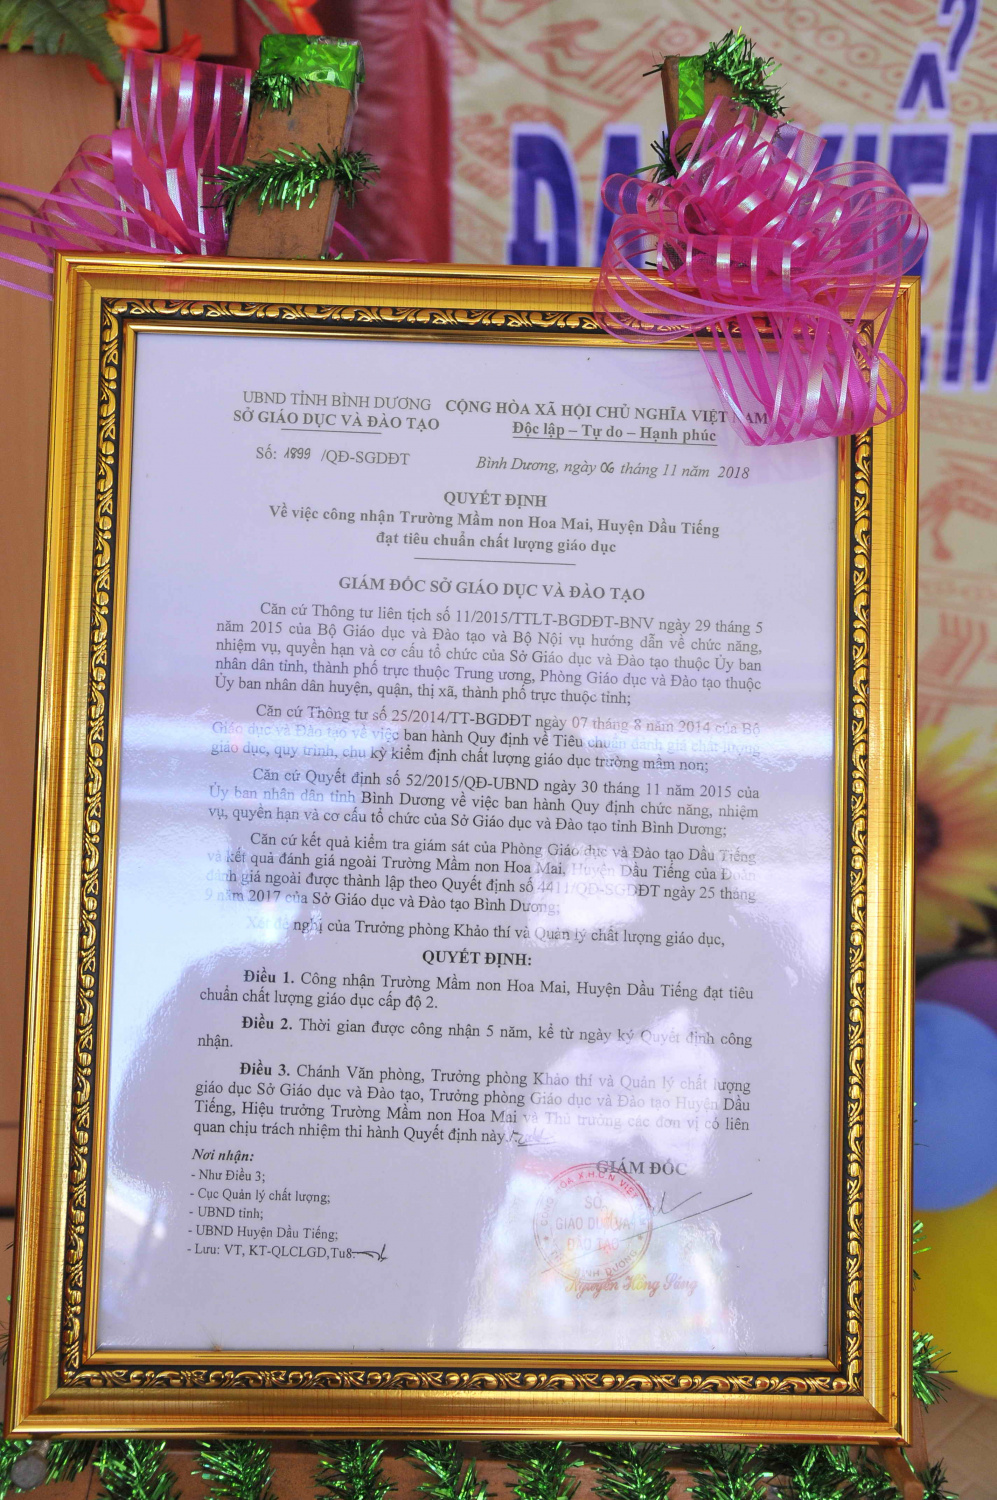 ĐẠT KIỂM
UBND TỈNH BÌNH DƯƠNG
SỞ GIÁO DỤC VÀ ĐÀO TẠO
CỘNG HÒA XÃ HỘI CHỦ NGHĨA VIỆT NAM
Độc lập – Tự do – Hạnh phúc
Số: 1899 /QĐ-SGDĐT
Bình Dương, ngày 06 tháng 11 năm 2018
QUYẾT ĐỊNH
Về việc công nhận Trường Mầm non Hoa Mai, Huyện Dầu Tiếng
đạt tiêu chuẩn chất lượng giáo dục
GIÁM ĐỐC SỞ GIÁO DỤC VÀ ĐÀO TẠO
Căn cứ Thông tư liên tịch số 11/2015/TTLT-BGDĐT-BNV ngày 29 tháng 5
năm 2015 của Bộ Giáo dục và Đào tạo và Bộ Nội vụ hướng dẫn về chức năng,
nhiệm vụ, quyền hạn và cơ cấu tổ chức của Sở Giáo dục và Đào tạo thuộc Ủy ban
nhân dân tỉnh, thành phố trực thuộc Trung ương, Phòng Giáo dục và Đào tạo thuộc
Ủy ban nhân dân huyện, quận, thị xã, thành phố trực thuộc tỉnh;
Căn cứ Thông tư số 25/2014/TT-BGDĐT ngày 07 tháng 8 năm 2014 của Bộ
Giáo dục và Đào tạo về việc ban hành Quy định về Tiêu chuẩn đánh giá chất lượng
giáo dục, quy trình, chu kỳ kiểm định chất lượng giáo dục trường mầm non;
Căn cứ Quyết định số 52/2015/QĐ-UBND ngày 30 tháng 11 năm 2015 của
Ủy ban nhân dân tỉnh Bình Dương về việc ban hành Quy định chức năng, nhiệm
vụ, quyền hạn và cơ cấu tổ chức của Sở Giáo dục và Đào tạo tỉnh Bình Dương;
Căn cứ kết quả kiểm tra giám sát của Phòng Giáo dục và Đào tạo Dầu Tiếng
và kết quả đánh giá ngoài Trường Mầm non Hoa Mai, Huyện Dầu Tiếng của Đoàn
đánh giá ngoài được thành lập theo Quyết định số 4411/QĐ-SGDĐT ngày 25 tháng
9 năm 2017 của Sở Giáo dục và Đào tạo Bình Dương;
Xét đề nghị của Trưởng phòng Khảo thí và Quản lý chất lượng giáo dục,
QUYẾT ĐỊNH:
Điều 1. Công nhận Trường Mầm non Hoa Mai, Huyện Dầu Tiếng đạt tiêu
chuẩn chất lượng giáo dục cấp độ 2.
Điều 2. Thời gian được công nhận 5 năm, kể từ ngày ký Quyết định công
nhận.
Điều 3. Chánh Văn phòng, Trưởng phòng Khảo thí và Quản lý chất lượng
giáo dục Sở Giáo dục và Đào tạo, Trưởng phòng Giáo dục và Đào tạo Huyện Dầu
Tiếng, Hiệu trưởng Trường Mầm non Hoa Mai và Thủ trưởng các đơn vị có liên
quan chịu trách nhiệm thi hành Quyết định này./.
Nơi nhận:
- Như Điều 3;
- Cục Quản lý chất lượng;
- UBND tỉnh;
- UBND Huyện Dầu Tiếng;
- Lưu: VT, KT-QLCLGD,Tu8.
GIÁM ĐỐC
SỞ
GIÁO DỤC VÀ
ĐÀO TẠO
Nguyễn Hồng Sáng